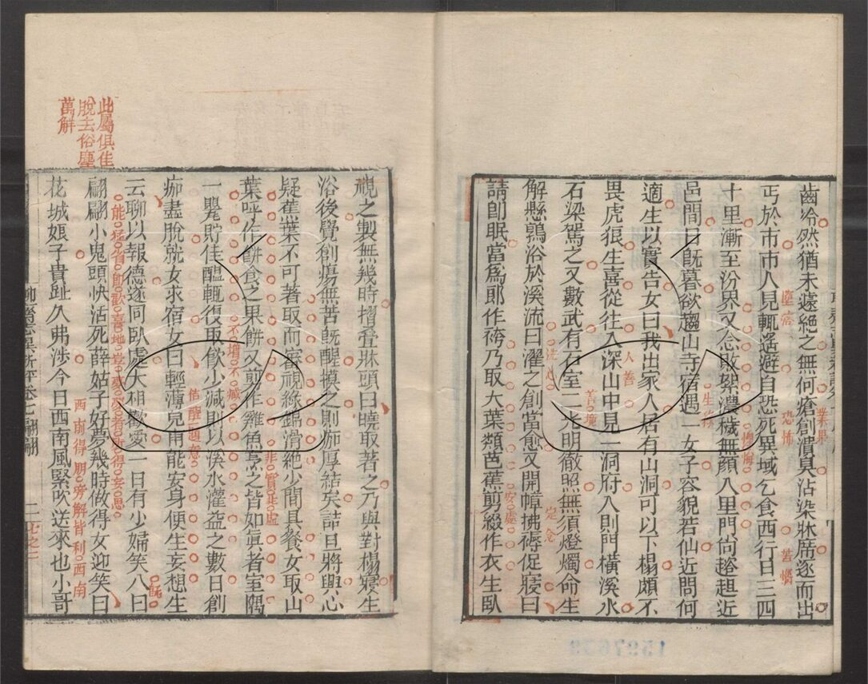 齒冷然猶未遽絕之無何瘡創潰臭沾染牀席逐而出
丐於市市人見輒遙避自恐死異域乞食西行日三四
十里漸至汾界又念敗絮濃穢無顏入里門尚趑趄近
邑間日既暮欲趨山寺宿遇一女子容貌若仙近問何
適生以實告女曰我出家人居有山洞可以下榻頗不
畏虎狼生喜從往入深山中見一洞府入則門橫溪水
石梁駕之又數武有石室二光明徹照無須燈燭命生
解懸鶉浴於溪流曰濯之創當愈又開幛拂褥促寢曰
請即眠當為郎作袴乃取大葉類芭蕉剪綴作衣生臥
視之製無幾時摺疊牀頭曰曉取著之乃與對榻寢生
浴後覺創瘍無苦既醒摸之則痂厚結矣詰旦將興心
疑蕉葉不可著取而審視綠錦滑絕少間具餐女取山
葉呼作餅食之果餅又剪作雞魚烹之皆如真者室隅
一甖貯佳醞輒復取飲少減則以溪水灌益之數日創
痂盡脫就女求宿女曰輕薄兒甫能安身便生妄想生
云聊以報德遂同臥處大相歡愛一日有少婦笑入曰
翩翩小鬼頭快活死薛姑子好夢幾時做得女迎笑曰
花城娘子貴趾久弗涉今日西南風緊吹送來也小哥
此屬俱佳
脫去俗塵
萬斛